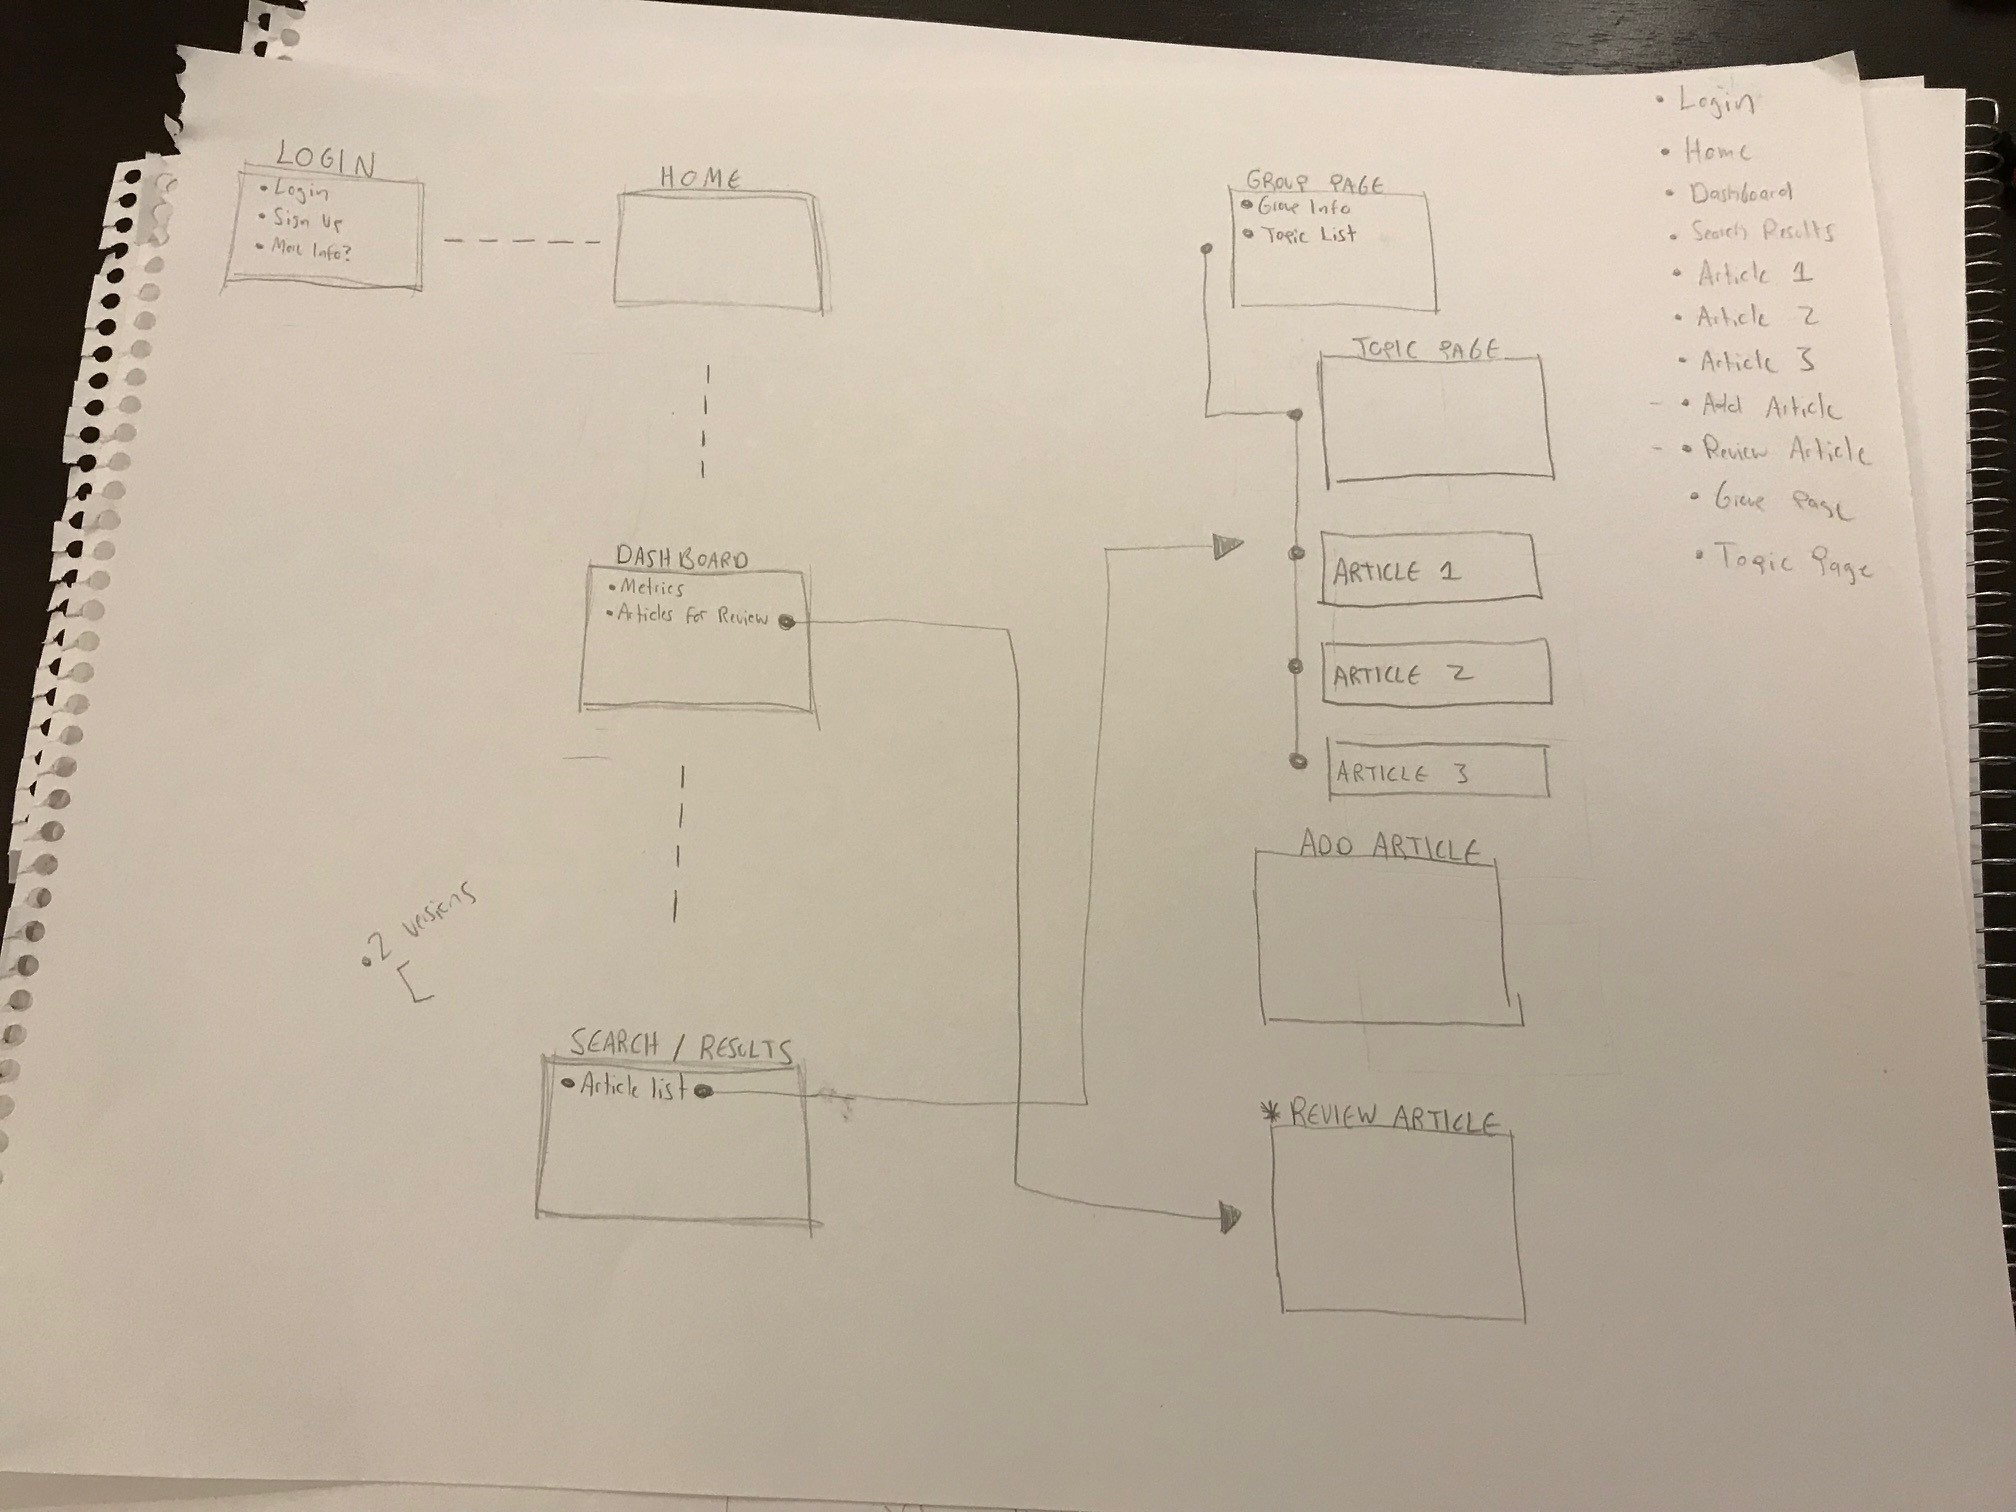 LOGIN
• Login
• Sign Up
• More Info?
HOME
DASHBOARD
• Metrics
• Articles For Review
• 2 versions
SEARCH / RESULTS
• Article list
GROUP PAGE
• Group Info
• Topic List
TOPIC PAGE
ARTICLE 1
ARTICLE 2
ARTICLE 3
ADD ARTICLE
* REVIEW ARTICLE
• Login
• Home
• Dashboard
• Search Results
• Article 1
• Article 2
• Article 3
- • Add Article
- • Review Article
• Group Page
• Topic Page